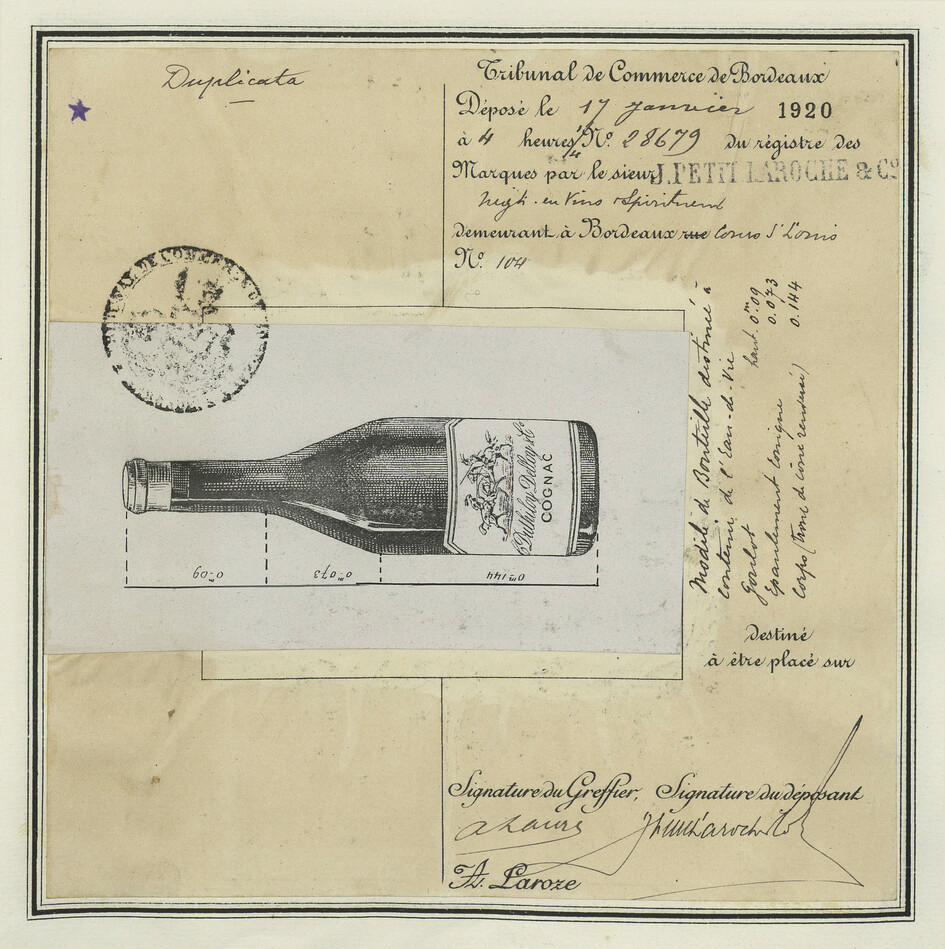 Duplicata
Tribunal de Commerce de Bordeaux
Déposé le 17 janvier 1920
à 4 heures Nº 28679 du régistre des
Marques par le sieur J. PETIT LAROCHE & Cº
Négt. en Vins & Spiritueux
demeurant à Bordeaux rue Cours St Louis
Nº 104
Modèle de Bouteille destinée à
contenir de l'Eau-de-Vie
Goulot haut. 0m.09
Epaulement Conique 0.073
Corps (tronc de cône renversé) 0.144
COGNAC
0m.09
0m.073
0m.144
Destiné
à être placé sur
Signature du Greffier,
Signature du déposant
A. Laroze